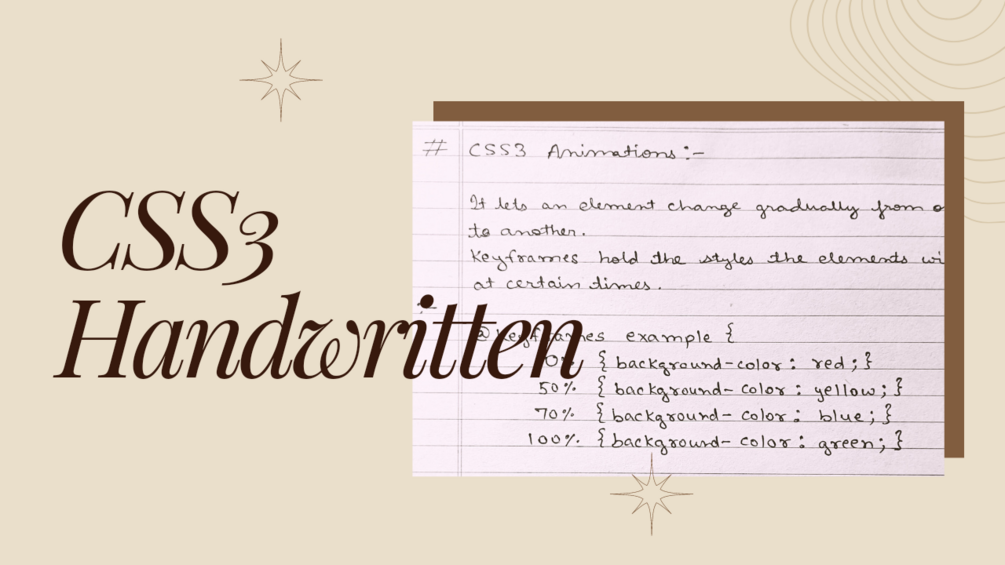 CSS3
Handwritten
# CSS3 Animations :-
It lets an element change gradually from
to another.
Keyframes hold the styles the elements
at certain times.
@keyframes example {
0% { background-color : red; }
50% { background-color : yellow; }
70% { background-color : blue; }
100% { background-color : green; }